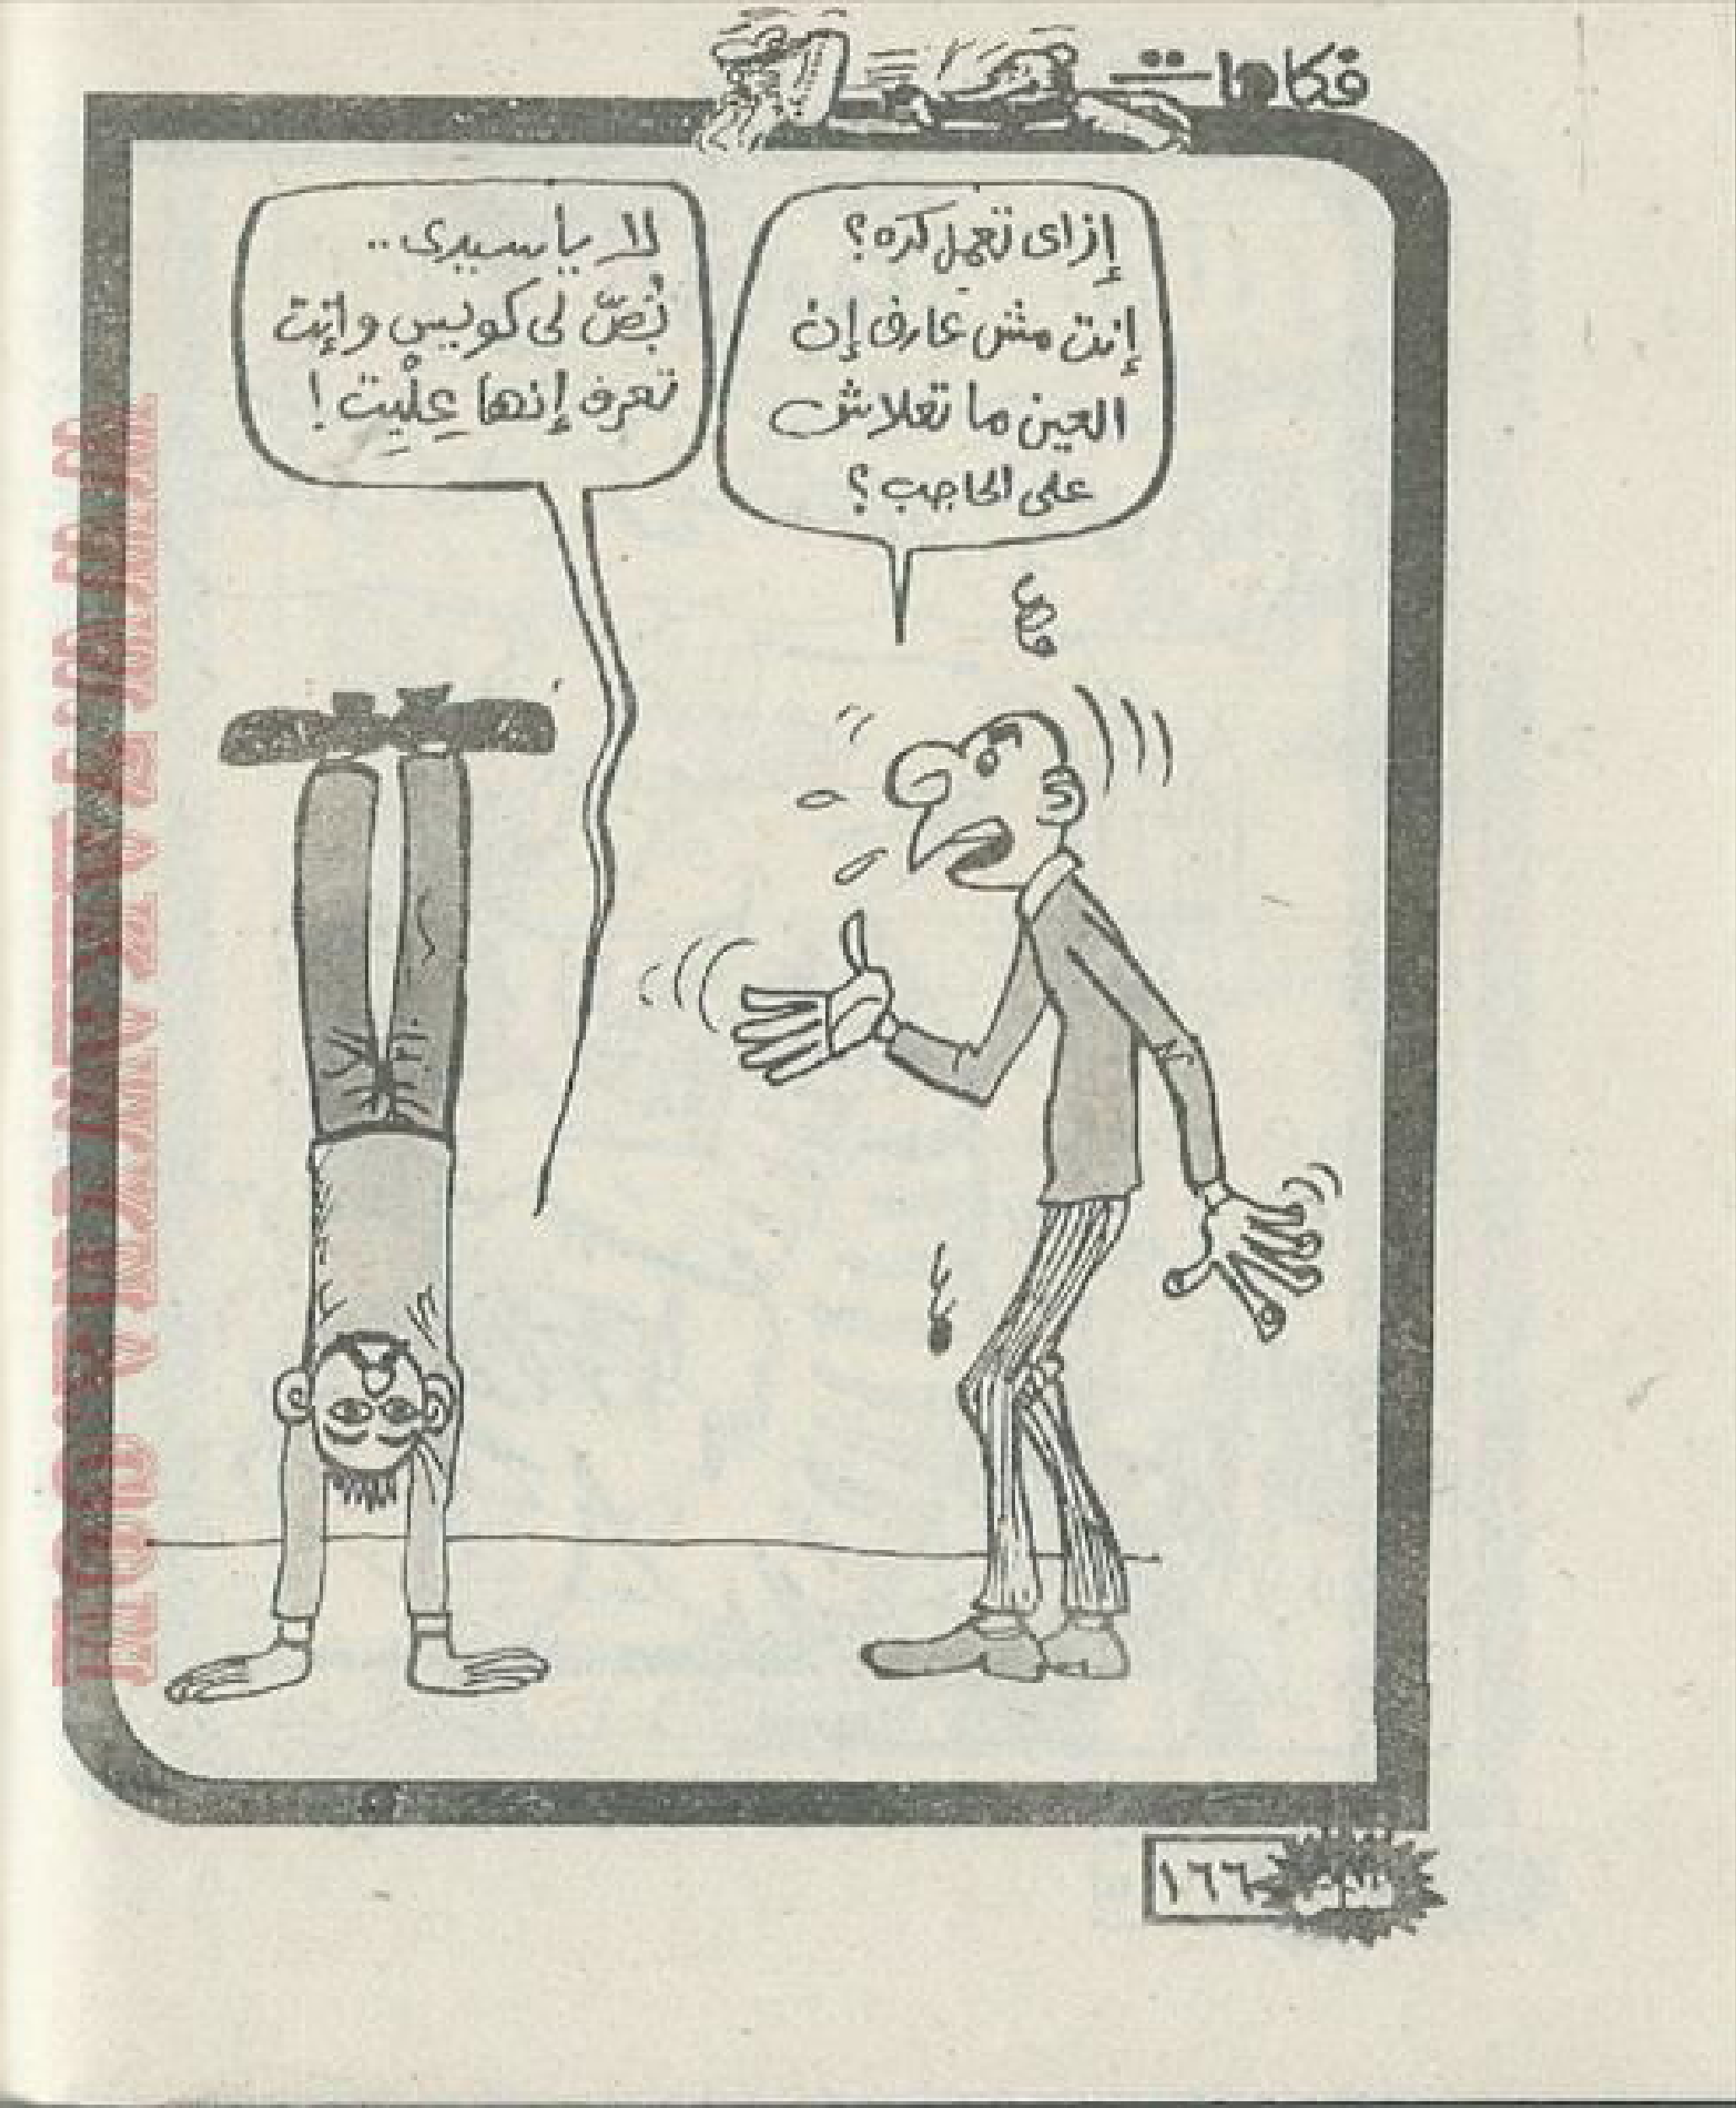 فكاهات
إزاى تعمل كده؟
إنت مش عارف إن
العين ما تعلاش
على الحاجب؟
لا ياسيدى..
بُصّ لى كويس وإنت
تعرف إنها عِلْيِت!
١٦٦